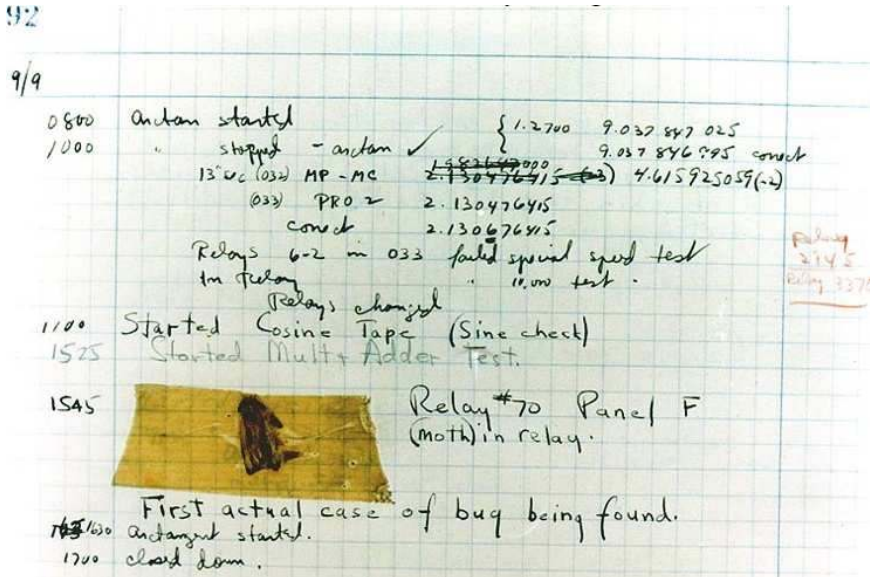 92
9/9
0800 antan started
1000 " stopped - antan ✓ { 1.2700 9.037 847 025
9.037 846 995 conect
13"uc (032) MP - MC 2.130476415 (-3) 4.615925059(-2)
(033) PRO 2 2.130476415
conect 2.130676415
Relays 6-2 in 033 failed special speed test
In Relay " 10.000 test .
Relays changed
Relay
2145
Relay 3370
1100 Started Cosine Tape (Sine check)
1525 Started Mult + Adder Test.
1545 Relay #70 Panel F
(moth) in relay.
First actual case of bug being found.
1630 antangent started.
1700 closed down .